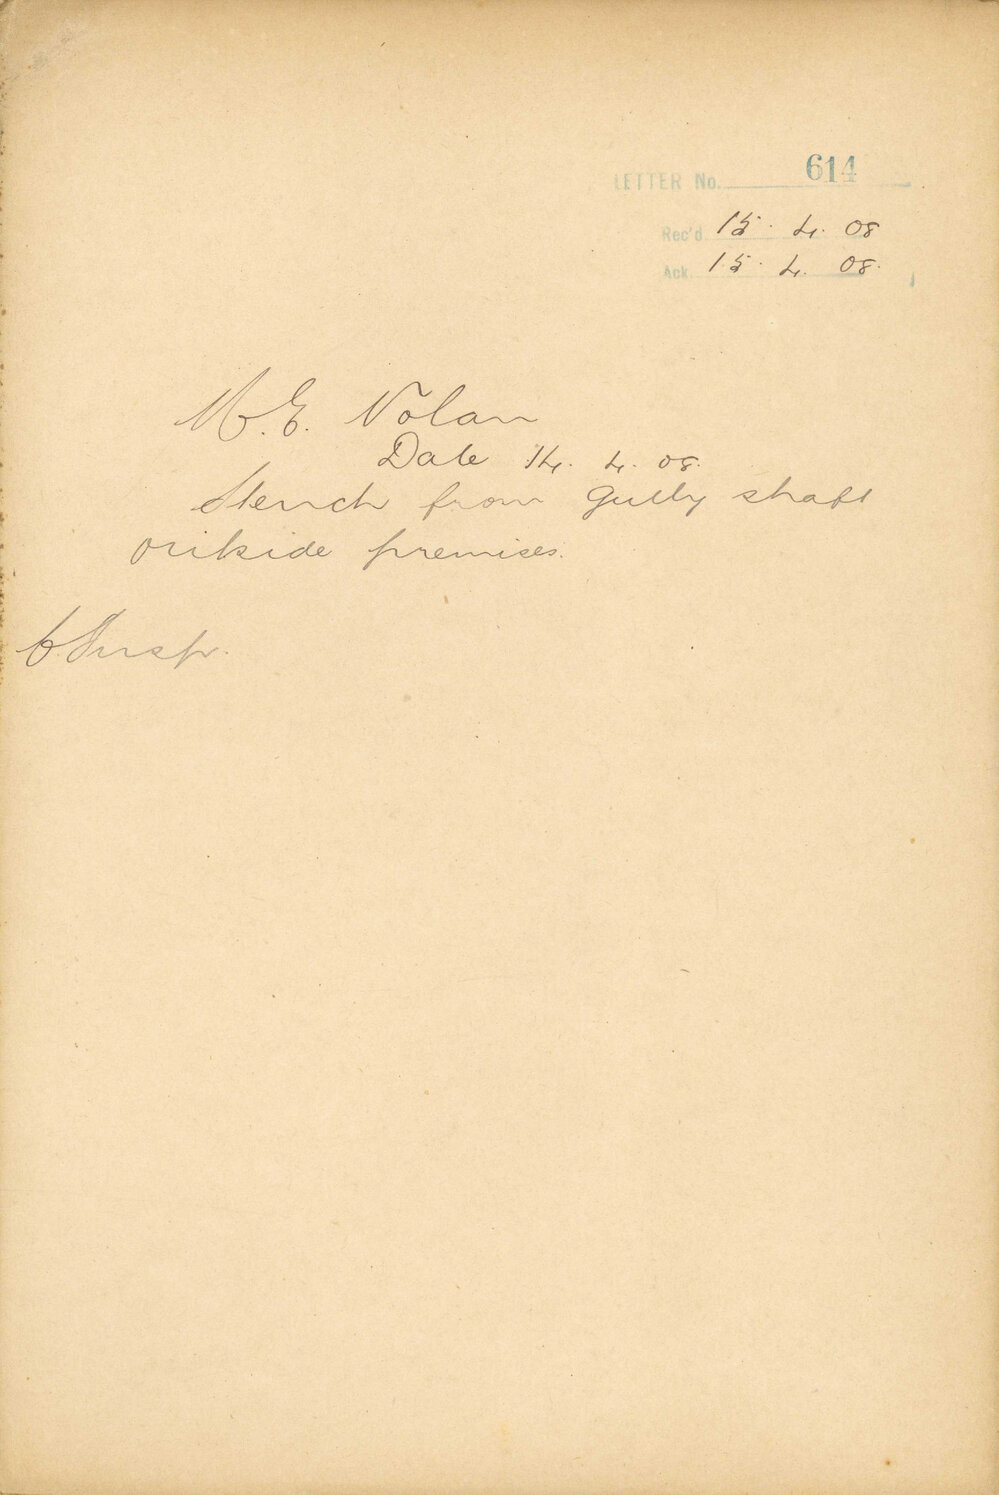 LETTER No. 614
Rec'd. 15. 4. 08
Ack. 15. 4. 08.
M. E. Nolan
Date 14. 4. 08.
Stench from gully shaft
outside premises.
C. Insp.